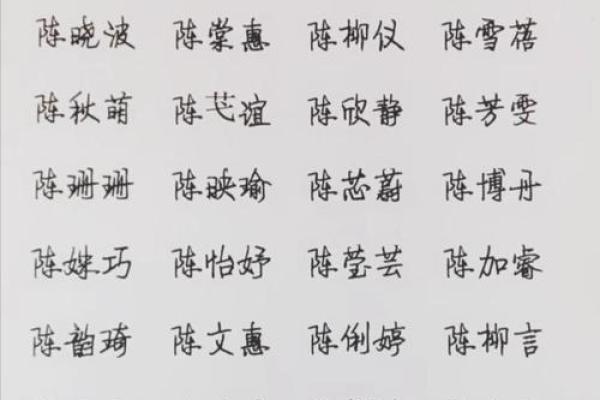 陈晓波 陈棠惠 陈柳仪 陈雪蓓
陈秋萌 陈芅谊 陈欣静 陈芳雯
陈珊珊 陈映瑜 陈芯蔚 陈博丹
陈姝巧 陈怡妤 陈莹芸 陈加睿
陈韵琦 陈文惠 陈俐婷 陈柳言